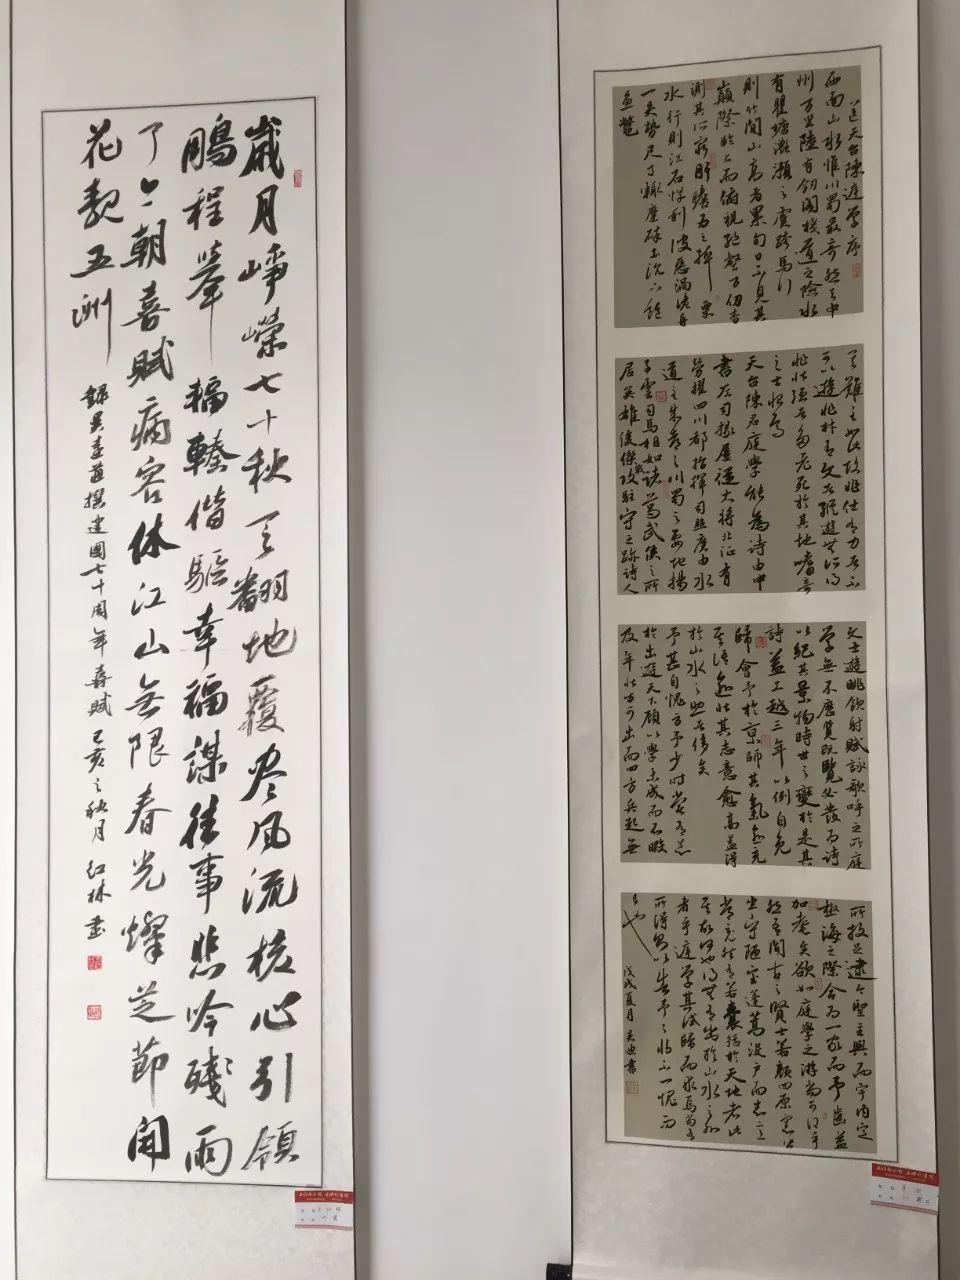 歲月崢嶸七十秋天翻地覆盡風流核心引領
鵬程舉輻轃偕驅幸福謀往事悲吟殘〻雨
了〻朝喜賦病容休江山無限春光燦芝節開
花靚五洲
撰建國七十周年喜賦 己亥之秋月 紅林書
送天台陳庭學序
西南山水惟川蜀最奇然去中
州萬里陸有劍閣棧道之險水
有瞿塘灩澦之虞跨馬行
則竹間山高者累旬日不見其
巔際臨上而俯視絕壑萬仞杳
測其所窮肝膽為之掉栗
水行則江石悍利波惡渦詭舟
一失勢尺寸輒糜碎土沉下飽
魚鱉
其難至如此故非仕有力者不
可以遊非材有文者縱遊無所得
非壯强者多老死於其地嗜奇
之士恨焉
天台陳君庭學能為詩由中
書左司掾屢從大將北征有
勞擢四川都指揮司照磨由水
道至成都川蜀之要地揚
子雲司馬相如諸葛武侯之所
居英雄俊傑攻駐守之跡詩人
文士遊眺飲射賦詠歌呼之所庭
學無不歷覽既覽必發為詩
以紀其景物時世之變於是其
詩益工越三年以例自免
歸會予於京師其氣愈充
其語愈壯其志意愈高蓋得
於山水之助者侈矣
予甚自愧方予少時嘗有志
於出遊天下顧以學未成而不暇
及年壯方可出而四方兵起無
所投足逮今聖主興而宇內定
極海之際合為一家而予齒益
加耄矣欲如庭學之游尚可得乎
然吾聞古之賢士若顏回原憲皆
坐守陋室蓬蒿沒戶而志意
常充然有若囊括於天地者此
其故何也得無有出於山水之外
者乎庭學其試歸而求焉苟有
所得則以告予予將不一愧而
已也
戊戌夏月 吳迪書